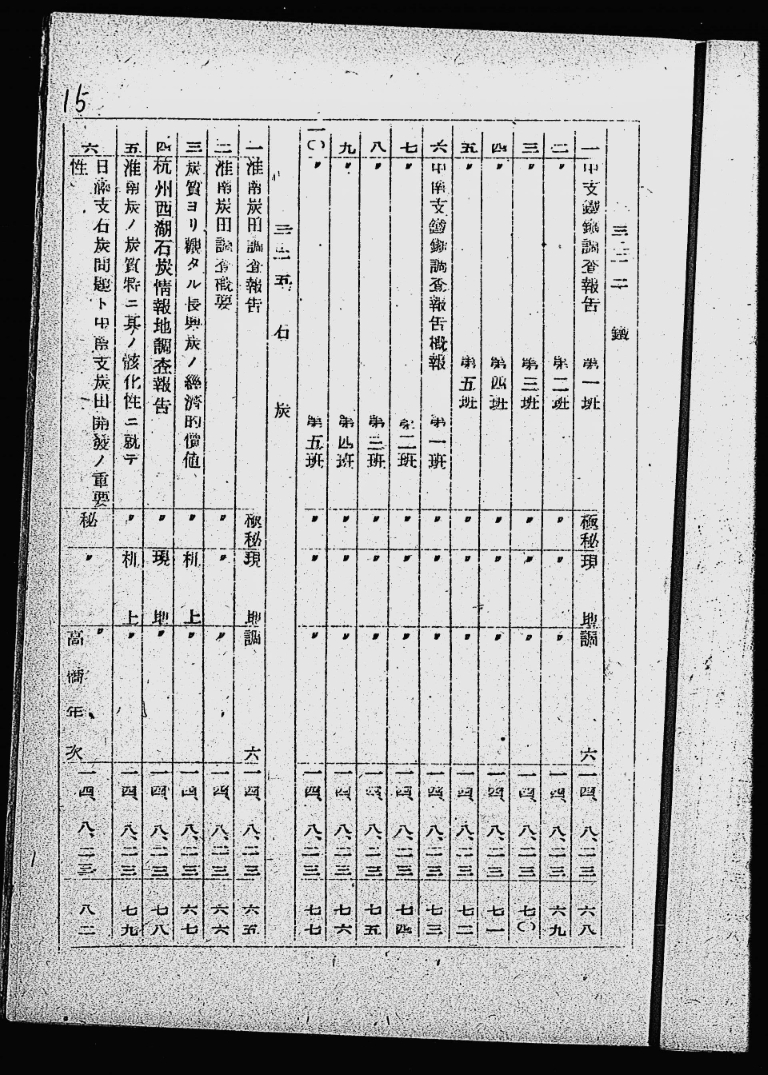 15
三、二二 鐵
一 中支鐵鑛調査報告 第一班 極秘 現地調 六 一四、八、二三 六八
二 〃 第二班 〃 〃 〃 一四、八、二三 六九
三 〃 第三班 〃 〃 〃 一四、八、二三 七〇
四 〃 第四班 〃 〃 〃 一四、八、二三 七一
五 〃 第五班 〃 〃 〃 一四、八、二三 七二
六 中南支鐵鑛調査報告概報 第一班 〃 〃 〃 一四、八、二三 七三
七 〃 第二班 〃 〃 〃 一四、八、二三 七四
八 〃 第三班 〃 〃 〃 一四、八、二三 七五
九 〃 第四班 〃 〃 〃 一四、八、二三 七六
一〇 〃 第五班 〃 〃 〃 一四、八、二三 七七
三、二五 石炭
一 淮南炭田調査報告 極秘 現地調 六 一四、八、二三 六五
二 淮南炭田調査概要 〃 〃 〃 一四、八、二三 六六
三 炭質ヨリ觀タル長興炭ノ經濟的價値 〃 机上 〃 一四、八、二三 六七
四 杭州西湖石炭情報地調査報告 〃 現地 〃 一四、八、二三 七八
五 淮南炭ノ炭質特ニ其ノ骸化性ニ就テ 〃 机上 〃 一四、八、二三 七九
六 日滿支石炭問題ト中南支炭田開發ノ重要
性 秘 〃 〃 高橋年次 一四、八、二三 八二